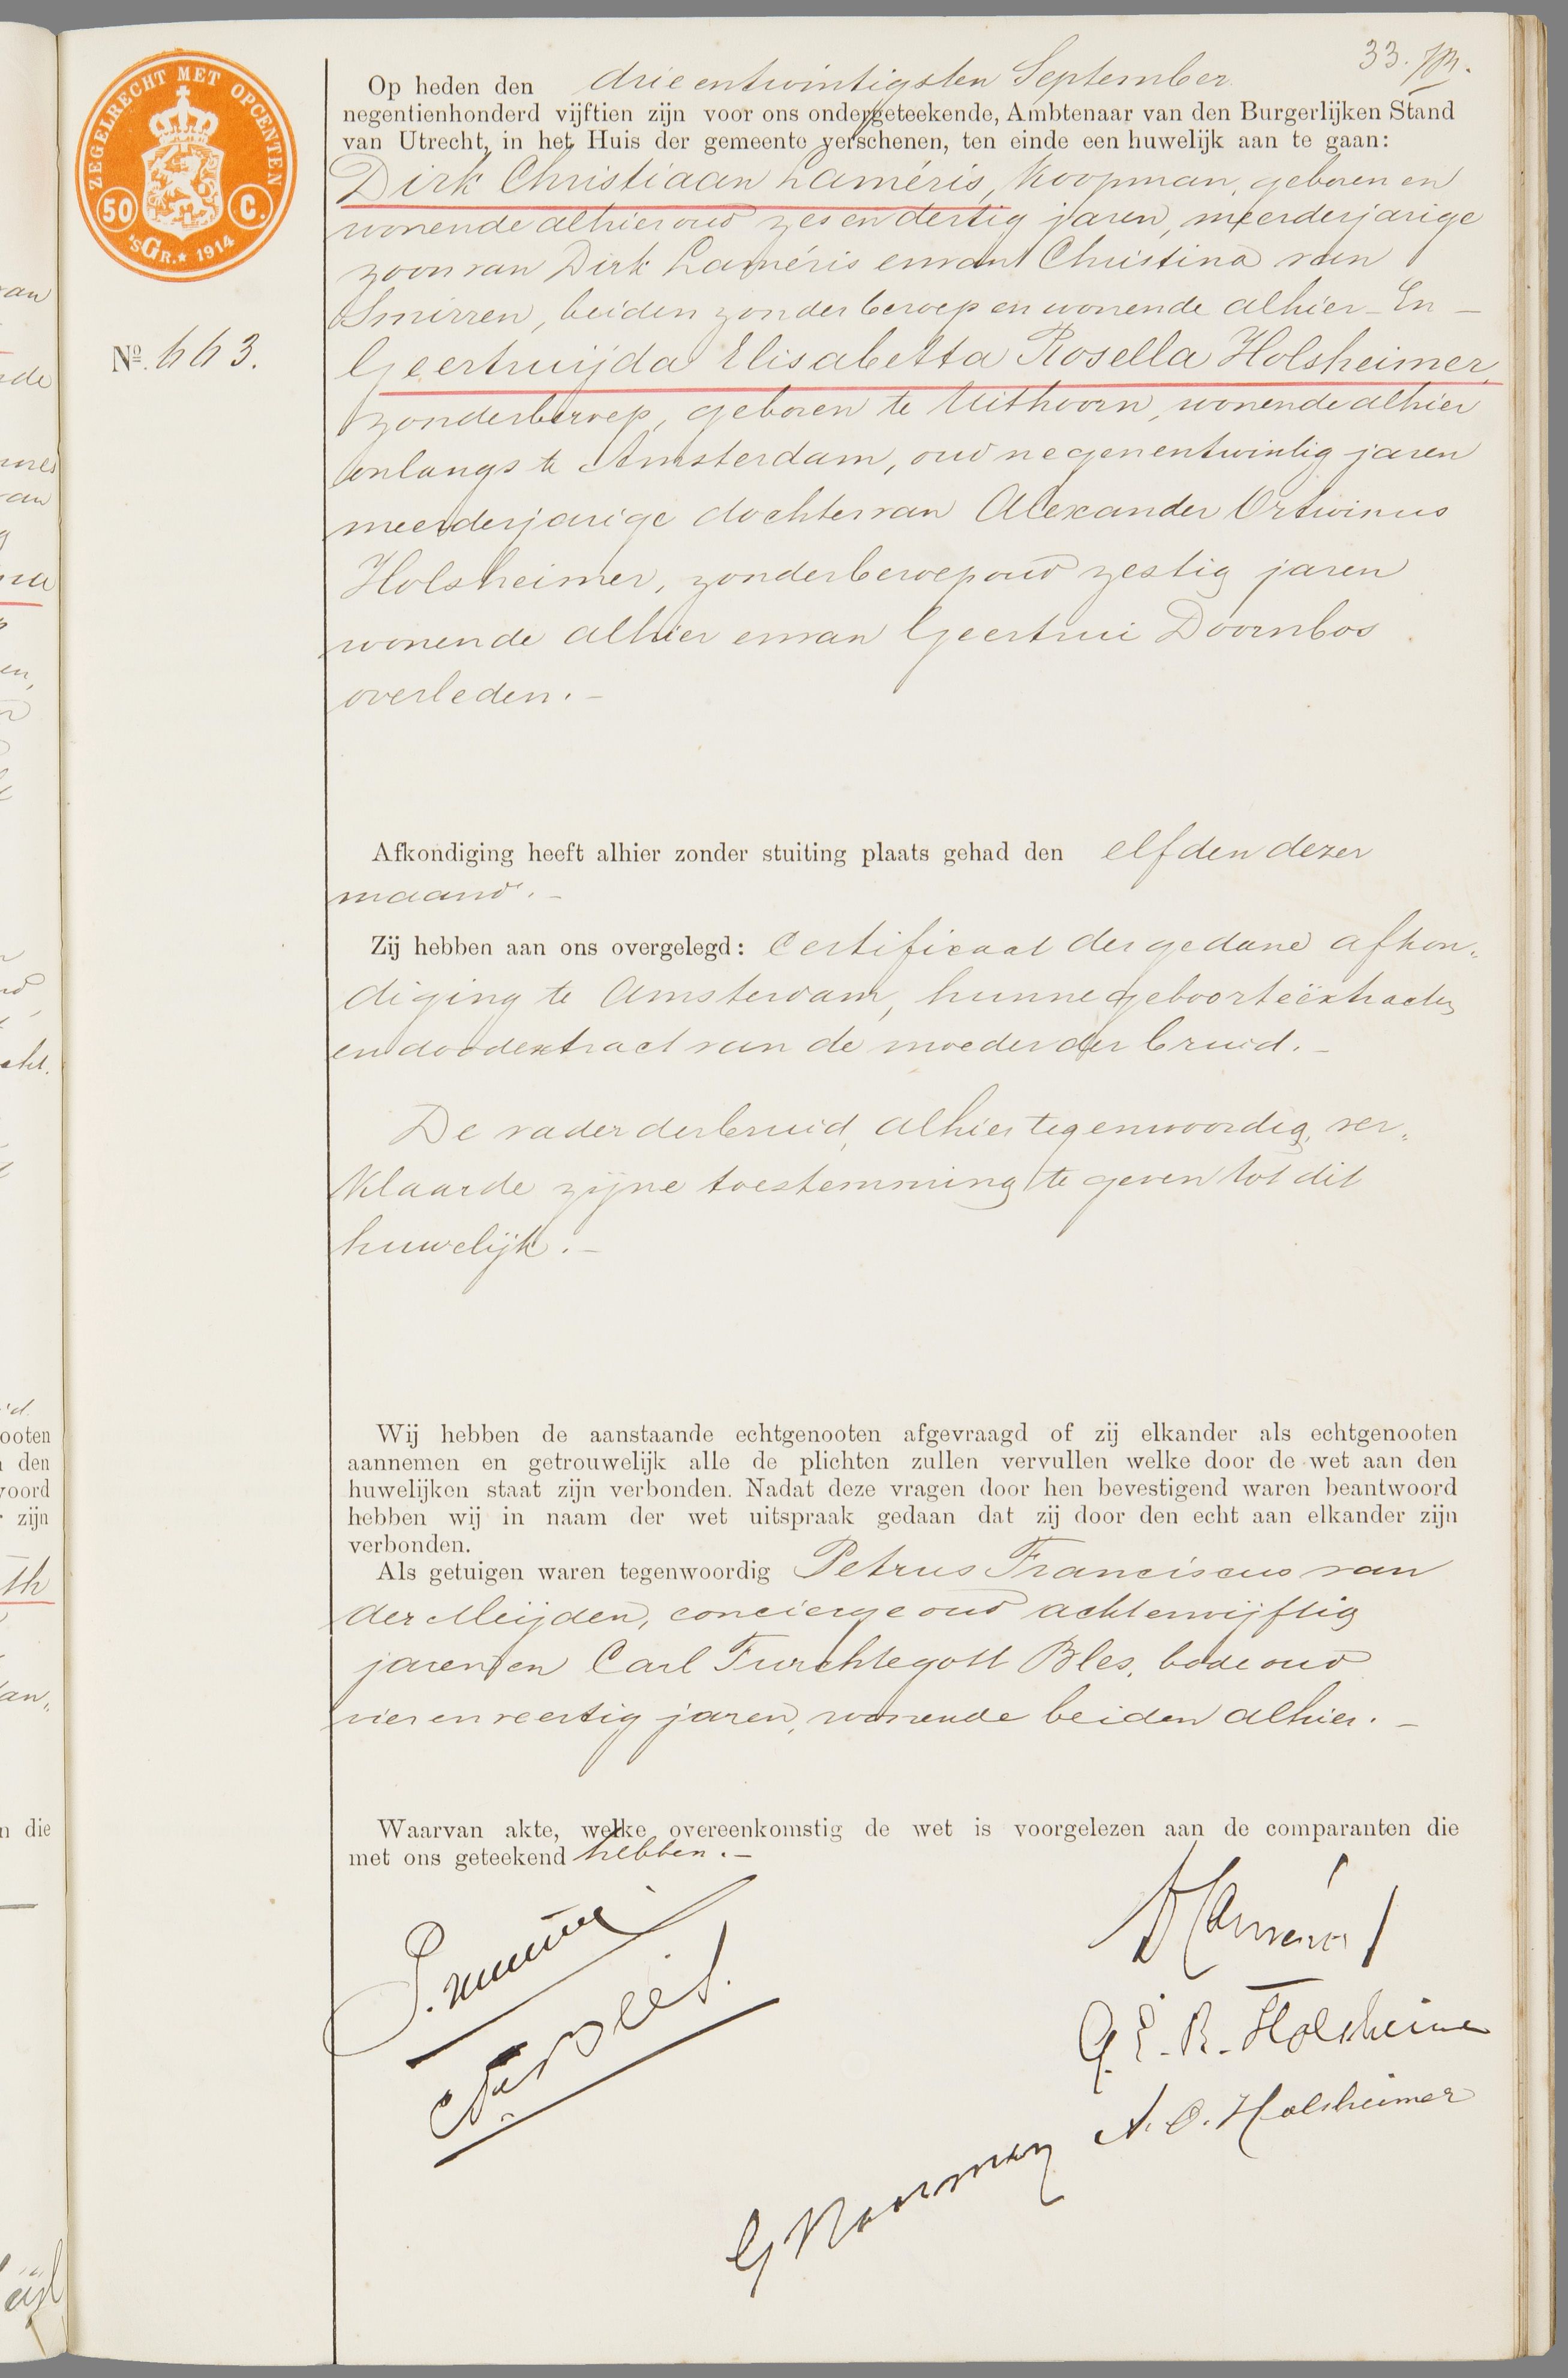 33.
ZEGELRECHT MET OPCENTEN
50 C.
'sGR.★ 1914
Nº. 663.
Op heden den drieentwintigsten September
negentienhonderd vijftien zijn voor ons ondergeteekende, Ambtenaar van den Burgerlijken Stand
van Utrecht, in het Huis der gemeente verschenen, ten einde een huwelijk aan te gaan:
Dirk Christiaan Laméris, koopman, geboren en
wonende alhier oud zesendertig jaren, meerderjarige
zoon van Dirk Laméris en van Christina van
Smirren, beiden zonder beroep en wonende alhier – En –
Geertruijda Elisabetta Rosella Holsheimer,
zonder beroep, geboren te Uithoorn, wonende alhier
onlangs te Amsterdam, oud negenentwintig jaren
meerderjarige dochter van Alexander Ortwinus
Holsheimer, zonder beroep oud zestig jaren
wonende alhier en van Geertrui Doornbos
overleden. –
Afkondiging heeft alhier zonder stuiting plaats gehad den elfden dezer
maand. –
Zij hebben aan ons overgelegd: Certificaat der gedane afkon„
diging te Amsterdam, hunne geboorteëxtracten
en doodextract van de moeder der bruid. –
De vader der bruid, alhier tegenwoordig, ver„
klaarde zijne toestemming te geven tot dit
huwelijk. –
Wij hebben de aanstaande echtgenooten afgevraagd of zij elkander als echtgenooten
aannemen en getrouwelijk alle de plichten zullen vervullen welke door de wet aan den
huwelijken staat zijn verbonden. Nadat deze vragen door hen bevestigend waren beantwoord
hebben wij in naam der wet uitspraak gedaan dat zij door den echt aan elkander zijn
verbonden.
Als getuigen waren tegenwoordig Petrus Franciscus van
der Meijden, concierge oud achtenvijftig
jaren en Carl Furchtegott Bles, bode oud
vierenveertig jaren, wonende beiden alhier. –
Waarvan akte, welke overeenkomstig de wet is voorgelezen aan de comparanten die
met ons geteekend hebben. –
D Laméris
G. E. R. Holsheimer
A. O. Holsheimer
Bles.
G Noorman